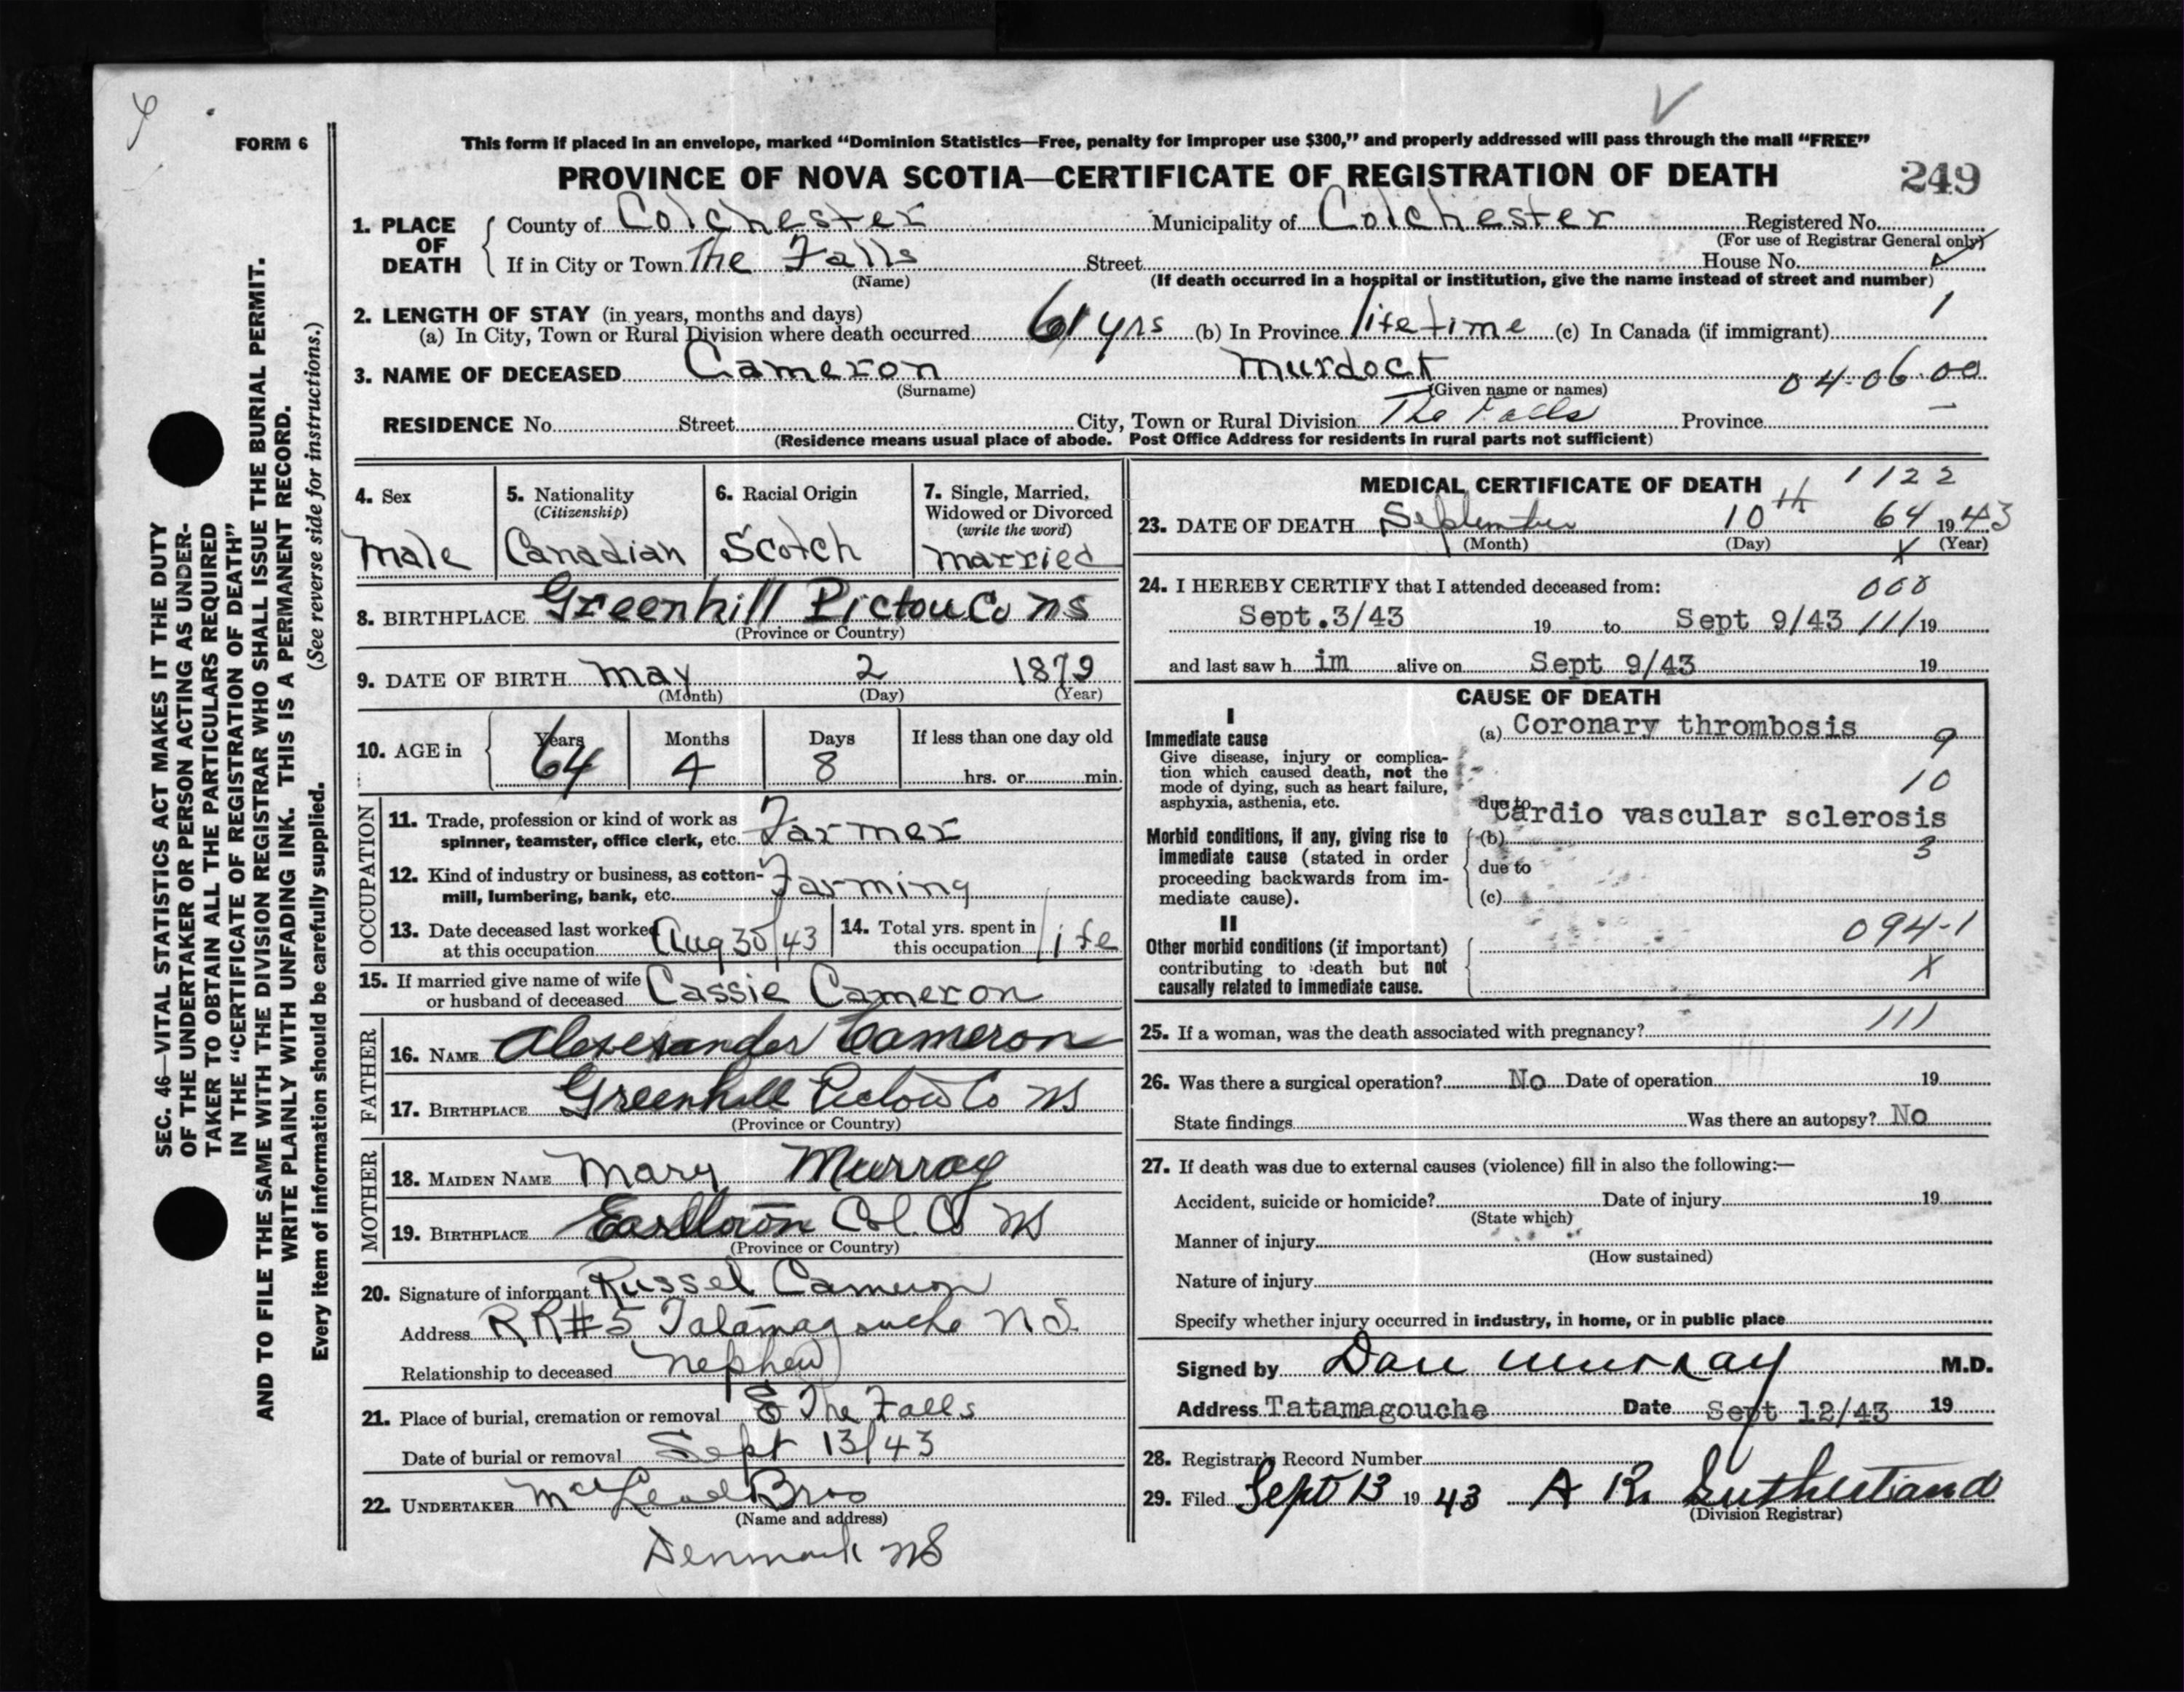 FORM 6
This form if placed in an envelope, marked “Dominion Statistics—Free, penalty for improper use $300,” and properly addressed will pass through the mail “FREE”
PROVINCE OF NOVA SCOTIA—CERTIFICATE OF REGISTRATION OF DEATH 249
1. PLACE OF DEATH
County of Colchester Municipality of Colchester Registered No.
(For use of Registrar General only)
If in City or Town The Falls Street House No.
(Name) (If death occurred in a hospital or institution, give the name instead of street and number)
2. LENGTH OF STAY (in years, months and days) 1
(a) In City, Town or Rural Division where death occurred 61 yrs (b) In Province lifetime (c) In Canada (if immigrant)
3. NAME OF DECEASED Cameron Murdock 04-06-00
(Surname) (Given name or names)
RESIDENCE No. Street City, Town or Rural Division The Falls Province
(Residence means usual place of abode. Post Office Address for residents in rural parts not sufficient)
4. Sex
Male
5. Nationality
(Citizenship)
Canadian
6. Racial Origin
Scotch
7. Single, Married,
Widowed or Divorced
(write the word)
married
8. BIRTHPLACE Greenhill Pictou Co NS
(Province or Country)
9. DATE OF BIRTH May 2 1879
(Month) (Day) (Year)
10. AGE in
Years Months Days If less than one day old
64 4 8 hrs. or min.
OCCUPATION
11. Trade, profession or kind of work as
spinner, teamster, office clerk, etc. Farmer
12. Kind of industry or business, as cotton-
mill, lumbering, bank, etc. Farming
13. Date deceased last worked
at this occupation Aug 30/43
14. Total yrs. spent in
this occupation life
15. If married give name of wife
or husband of deceased Cassie Cameron
FATHER
16. NAME Alexander Cameron
17. BIRTHPLACE Greenhill Pictou Co NS
(Province or Country)
MOTHER
18. MAIDEN NAME Mary Murray
19. BIRTHPLACE Earltown Col. Co NS
(Province or Country)
20. Signature of informant Russel Cameron
Address RR#5 Tatamagouche N.S.
Relationship to deceased nephew
21. Place of burial, cremation or removal The Falls
Date of burial or removal Sept 13/43
22. UNDERTAKER Bros
(Name and address)
Denmark NS
MEDICAL CERTIFICATE OF DEATH 1122
23. DATE OF DEATH September 10th 64 1943
(Month) (Day) X (Year)
24. I HEREBY CERTIFY that I attended deceased from: 008
Sept.3/43 19 to Sept 9/43 111/19
and last saw h im alive on Sept 9/43 19
CAUSE OF DEATH
I
Immediate cause
Give disease, injury or complica-
tion which caused death, not the
mode of dying, such as heart failure,
asphyxia, asthenia, etc.
(a) Coronary thrombosis 9
10
due to
Cardio vascular sclerosis
Morbid conditions, if any, giving rise to
immediate cause (stated in order
proceeding backwards from im-
mediate cause).
(b)
3
due to
(c)
II
Other morbid conditions (if important)
contributing to death but not
causally related to immediate cause.
094-1
X
25. If a woman, was the death associated with pregnancy? 111
26. Was there a surgical operation? No Date of operation 19
State findings Was there an autopsy? No
27. If death was due to external causes (violence) fill in also the following:—
Accident, suicide or homicide? Date of injury 19
(State which)
Manner of injury
(How sustained)
Nature of injury
Specify whether injury occurred in industry, in home, or in public place
Signed by Dan Murray M.D.
Address Tatamagouche Date Sept 12/43 19
28. Registrar's Record Number
29. Filed Sept 13 1943 A R Sutherland
(Division Registrar)
SEC. 46—VITAL STATISTICS ACT MAKES IT THE DUTY
OF THE UNDERTAKER OR PERSON ACTING AS UNDER-
TAKER TO OBTAIN ALL THE PARTICULARS REQUIRED
IN THE “CERTIFICATE OF REGISTRATION OF DEATH”
AND TO FILE THE SAME WITH THE DIVISION REGISTRAR WHO SHALL ISSUE THE BURIAL PERMIT.
WRITE PLAINLY WITH UNFADING INK. THIS IS A PERMANENT RECORD.
Every item of information should be carefully supplied. (See reverse side for instructions.)